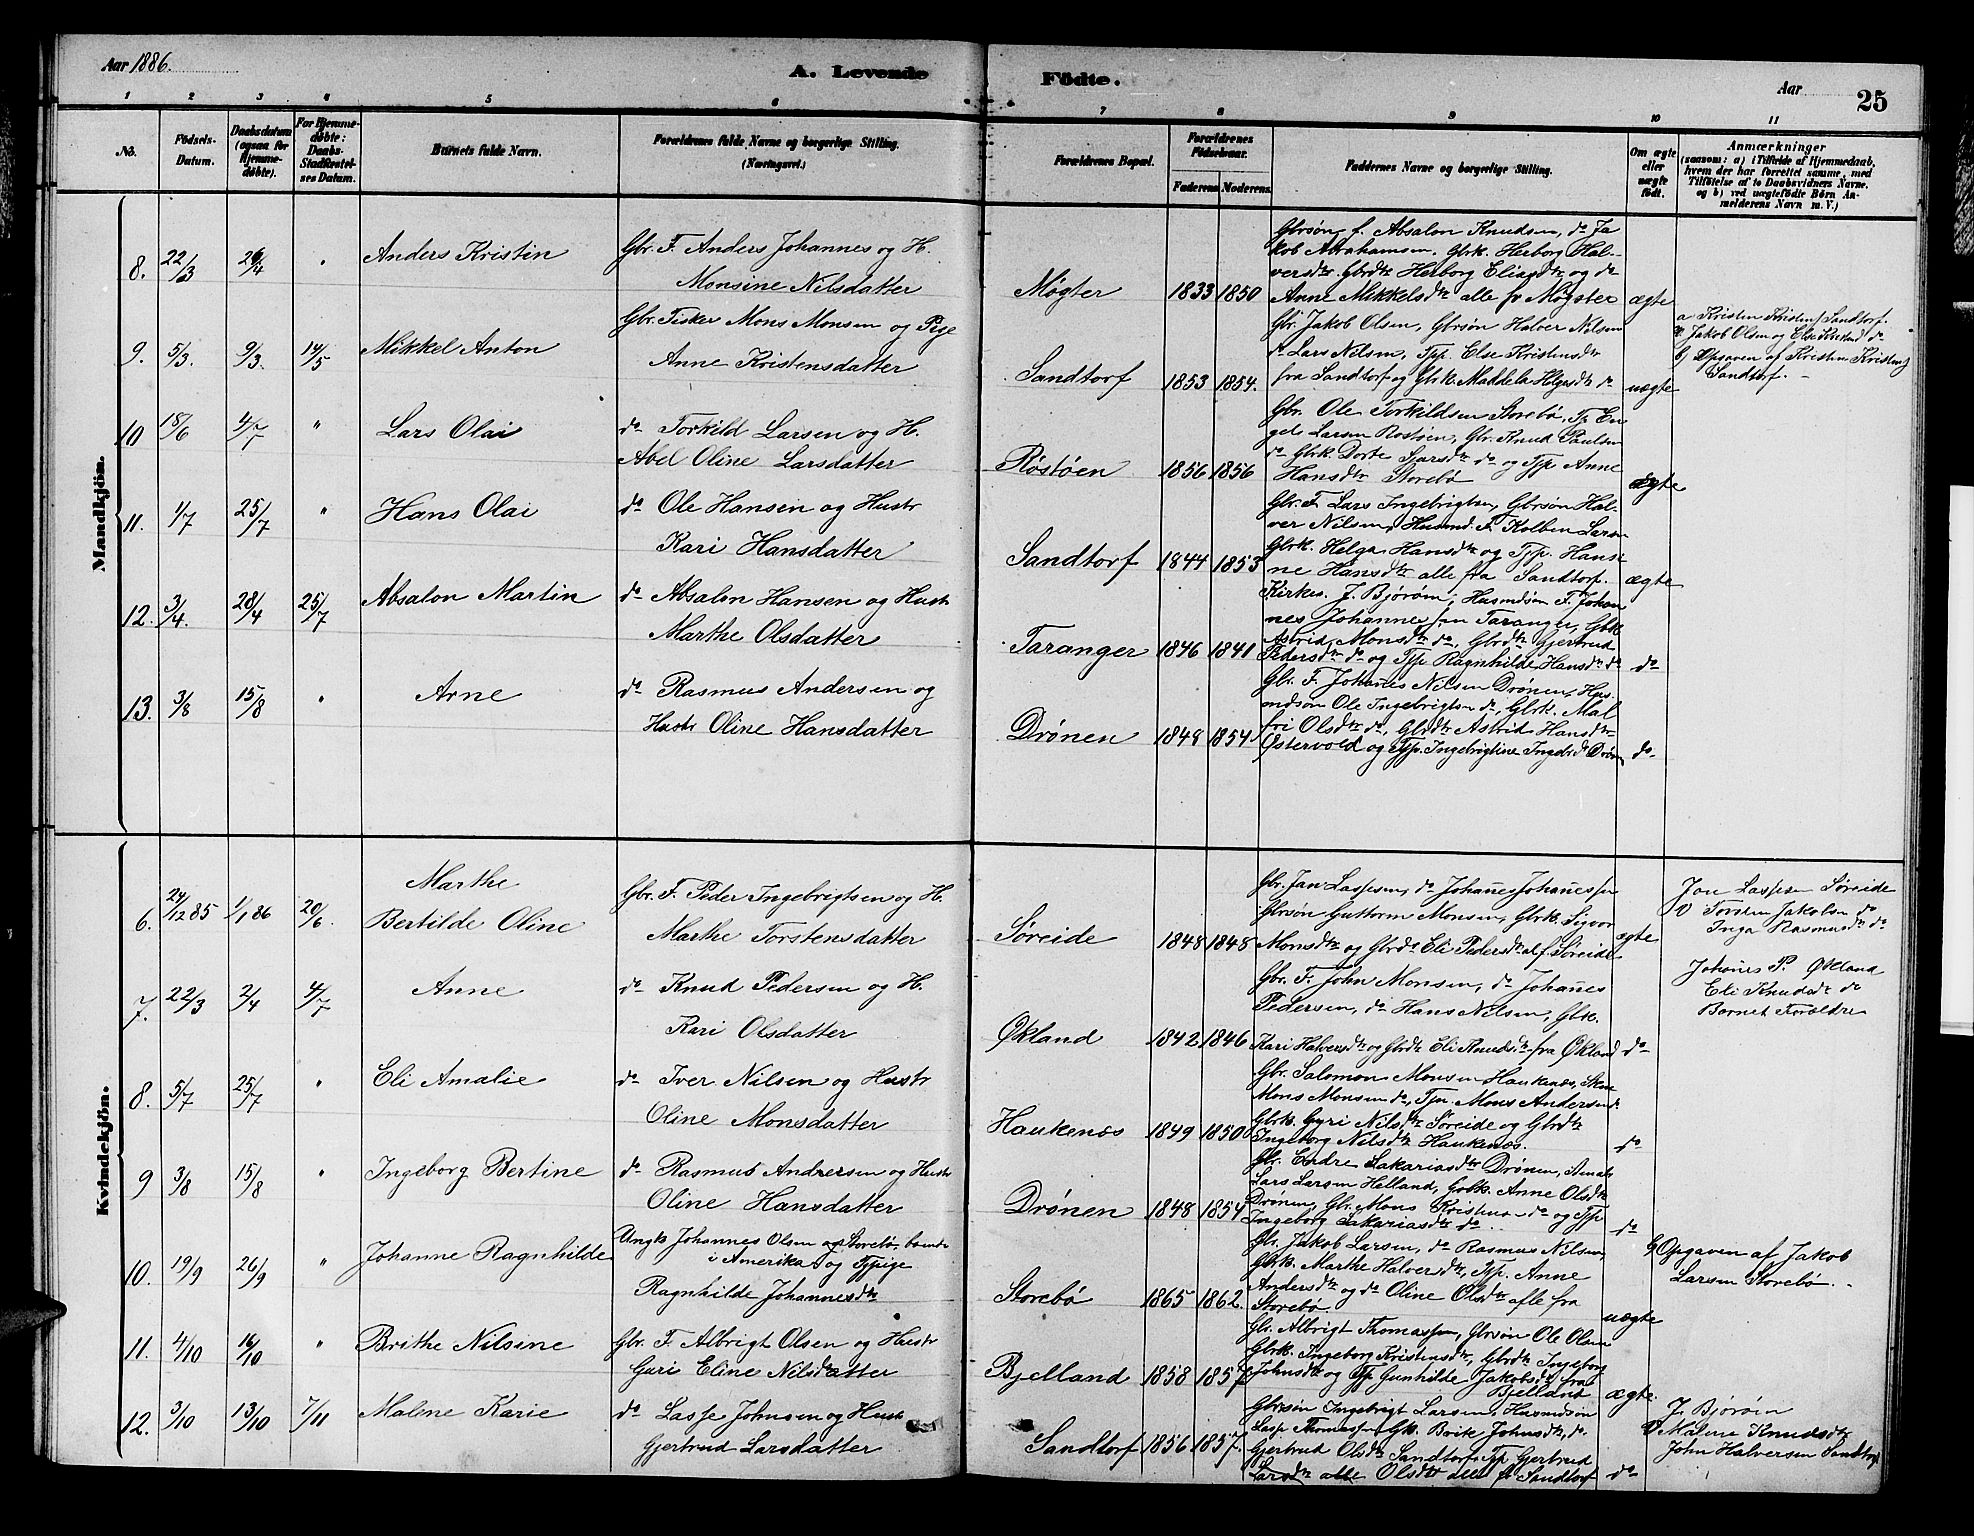 Aar 1886.
A. Levende
Födte.
Aar
25
1 2 3 4 5 6 7 8 9 10 11
No.
Födsels-
Datum.
Daabsdatum
(ogsaa for
Hjemme-
døbte).
For Hjemme-
døbte:
Daabs-
Stadfæstel-
ses Datum.
Barnets fulde Navn.
Forældrenes fulde Navne og borgerlige Stilling.
(Næringsvei.)
Forældrenes Bopæl.
Forældrenes
Fødselsaar.
Faderens. Moderens.
Faddernes Navne og borgerlige Stilling.
Om ægte
eller
uægte
født.
Anmærkninger
(saasom: a) i Tilfælde af Hjemmedaab,
hvem der har forrettet samme, med
Tilföielse af to Daabsvidners Navne,
og b) ved uægtefödte Börn An-
melderens Navn m. V.)
Mandkjön.
8. 22/3 26/4 " Anders Kristin
Gbr. F. Anders Johannes og H.
Monsine Nilsdatter
Møgter 1833 1850
Gbrsøn f. Absalon Knudsen, do Ja
kob Abrahamsen, Gbrk. Herborg Hal-
versdtr. Gbrdtr Herborg Eliasdtr og do
Anne Mikkelsdtr alle fr Møgster
ægte
9. 5/3. 9/3. 14/5 Mikkel Anton
Gbr. Fisker Mons Monsen og Pige
Anne Kristensdatter
Sandtorf 1853 1854.
Gbr. Jakob Olsen, Gbrsøn Halver Nilsen
do Lars Nilsen, Tjp. Else Kristensdtr
fra Sandtorf og Gbrk. Maddela Helgesdtr do
uægte
a Kristen Kristens Sandtorf.
Jakob Olsen og Else Kristensd do
b) Opgaven af Kristen Kristens
Sandtorf.
10 18/6 4/7 " Lars Olai
do Torkild Larsen og H.
Abel Oline Larsdatter
Röstöen 1856 1856
Gbr. Ole Torkildsen Storebø, Tj. En
gel Larsen Rostøen, Gbr. Knud Paulsen
do Gbrk. Dorte Sjursdtr do og Tjp Anne
Hansdtr Storebø
ægte
11. 1/7 25/7 " Hans Olai
do Ole Hansen og Hustr
Kari Hansdatter
Sandtorf 1844 1853
Gbr. F. Lars Ingebrigtsen, Gbrsøn Hal-
ver Nilsen, Husmd. F. Kolben Larsen
Gbrk. Helga Hansdtr og Tjp. Hansi-
ne Hansdtr alle fra Sandtorf.
ægte
12. 3/4. 28/4 25/7 Absalon Martin
do Absalon Hansen og Hustr
Marthe Olsdatter
Taranger 1846 1841
Kirkes. J. Bjørøin, Husmdsøn F. Johan
nes Johannessen Taranger, Gbrk.
Astrid Monsdtr do, Gbrdtr Gjertrud
Pedersdtr do og Tjp Ragnhilde Hansdtr do
do
13. 3/8 15/8 " Arne
do Rasmus Andersen og
Hustr Oline Hansdatter
Drönen 1848 1854
Gbr. F. Johanes Nilsen Drønen, Hus-
mdsøn Ole Ingebrigtsen do, Gbrk. Mal
fri Olsdtr do, Gbrdtr Astrid Hansdtr
Østervold og Tjp. Ingebrigtine Ingdtr Drøn
do
Kvindekjön.
6. 24/12 85 1/1 86 20/6. Marthe
Bertilde Oline
Gbr. F. Peder Ingebrigtsen og H.
Marthe Torstensdatter
Søreide 1848 1848
Gbr. Jan Laspesen, do Johanes Johanessen
Gbrsøn Guttorm Monsen, Gbrk. Sigvor
Monsdtr og Gbrdtr Eli Pedersdtr al f. Søreide
ægte
Jon Laspesen Søreide
V Torsten Jakobsen do
Inga Rasmusdtr do
7. 22/3 2/4 4/7 Anne
do Knud Pedersen og H.
Kari Olsdatter
Økland 1842 1846
Gbr. F. John Monsen, do Johanes
Pedersen, do Hans Nilsen, Gbrk.
Kari Halversdtr og Gbrdtr Eli Knudsdtr fra Økland
do
Johanes P. Økland
Eli Knudsdtr do
Barnet Foreldre
8. 5/7 25/7 " Eli Amalie
do Iver Nilsen og Hustr
Oline Monsdatter
Haukenæs 1849 1850
Gbr. Salomon Monsen Haukenæs,
Mons Monsen do, Mons Andersen do
Gbrk. Gyri Nilsdtr Søreide og Gbrdtr
Ingeborg Nilsdtr Haukenæs.
do
9 3/8 15/8 " Ingeborg Bertine
do Rasmus Andersen og Hustr
Oline Hansdatter
Drönen 1848 1854
Gbr. Endre Sakariasdtr Drønen,
Lars Larsen Helland, Gbrk. Anne Olsdtr
Drønen, Gbr. Mons Kristensen do og Tjp
Ingeborg Sakariasdtr do
do
10. 19/9 26/9 " Johanne Ragnhilde
Ungk. Johannes Olsen og Storebø
i Amerika og Tjpige
Ragnhilde Johannesdtr
Storebø 1865 1862.
Gbr. Jakob Larsen, do Rasmus Nilsen,
Gbrk. Marthe Halversdtr, Tjp. Anne
Andersdtr og do Oline Olsdtr alle fra
Storebø.
uægte
b) Opgaven af Jakob
Larsen Storebø.
11. 4/10 16/10 " Brithe Nilsine
Gbr. F. Albrigt Olsen og Hustr
Guri Eline Nilsdatter
Bjelland 1858 1857
Gbr. Albrigt Thomassen, Gbrsøn Ole Olsen
Gbrk. Ingeborg Kristensdtr, Gbrdtr Ingeborg
Johnsdtr og Tjp Gunhilde Jakobsdtr fra
Bjelland
ægte
12. 3/10 13/10 7/11 Malene Karie
do Lasse Johnsen og Hustr
Gjertrud Larsdatter
Sandtorf 1856 1857.
Gbrsøn Ingebrigt Larsen, Husmdsøn
Lasse Thomassen, Gbk. Brite Johnsdtr, do
Gjertrud Olsdtr Sandtorf, Tjp Gjertrud
Larsdtr alle Olsdtr alle fr Sandtorf
do
J. Bjørøin
V Malene Knudsdtr
John Halversen Sandtorf